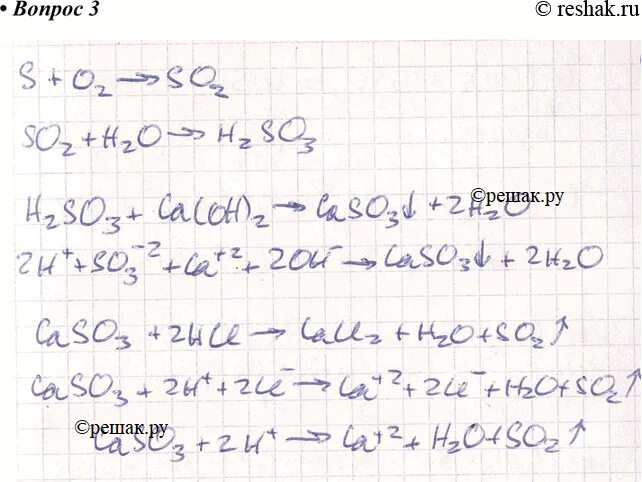 • Вопрос 3
© reshak.ru
S + O₂ → SO₂
SO₂ + H₂O → H₂SO₃
©решак.ру
H₂SO₃ + Ca(OH)₂ → CaSO₃↓ + 2H₂O
2H⁺ + SO₃⁻² + Ca⁺² + 2OH⁻ → CaSO₃↓ + 2H₂O
CaSO₃ + 2HCl → CaCl₂ + H₂O + SO₂↑
CaSO₃ + 2H⁺ + 2Cl⁻ → Ca⁺² + 2Cl⁻ + H₂O + SO₂↑
©решак.ру
CaSO₃ + 2H⁺ → Ca⁺² + H₂O + SO₂↑